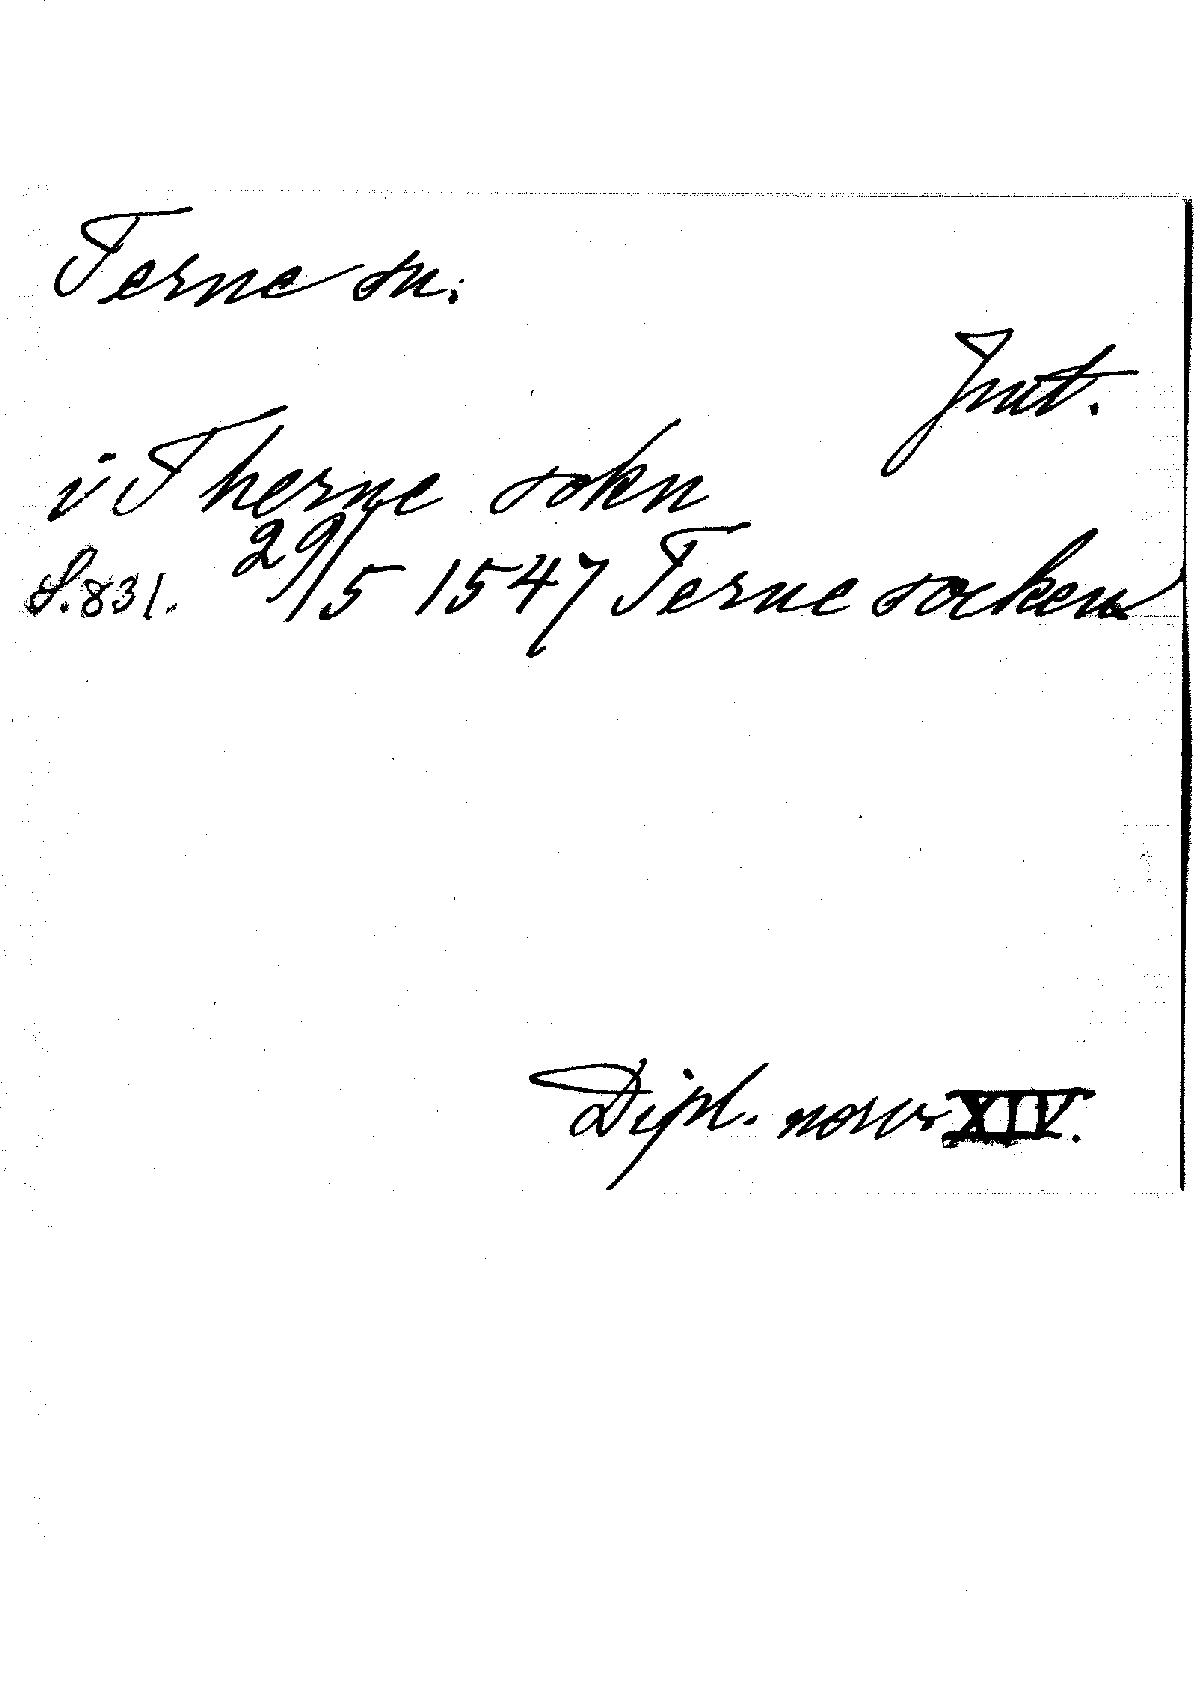 Terne sn.
Jmt.
i Therne sokn
S. 831. 29/5 1547 Terne socken
Dipl. norv. XIV.